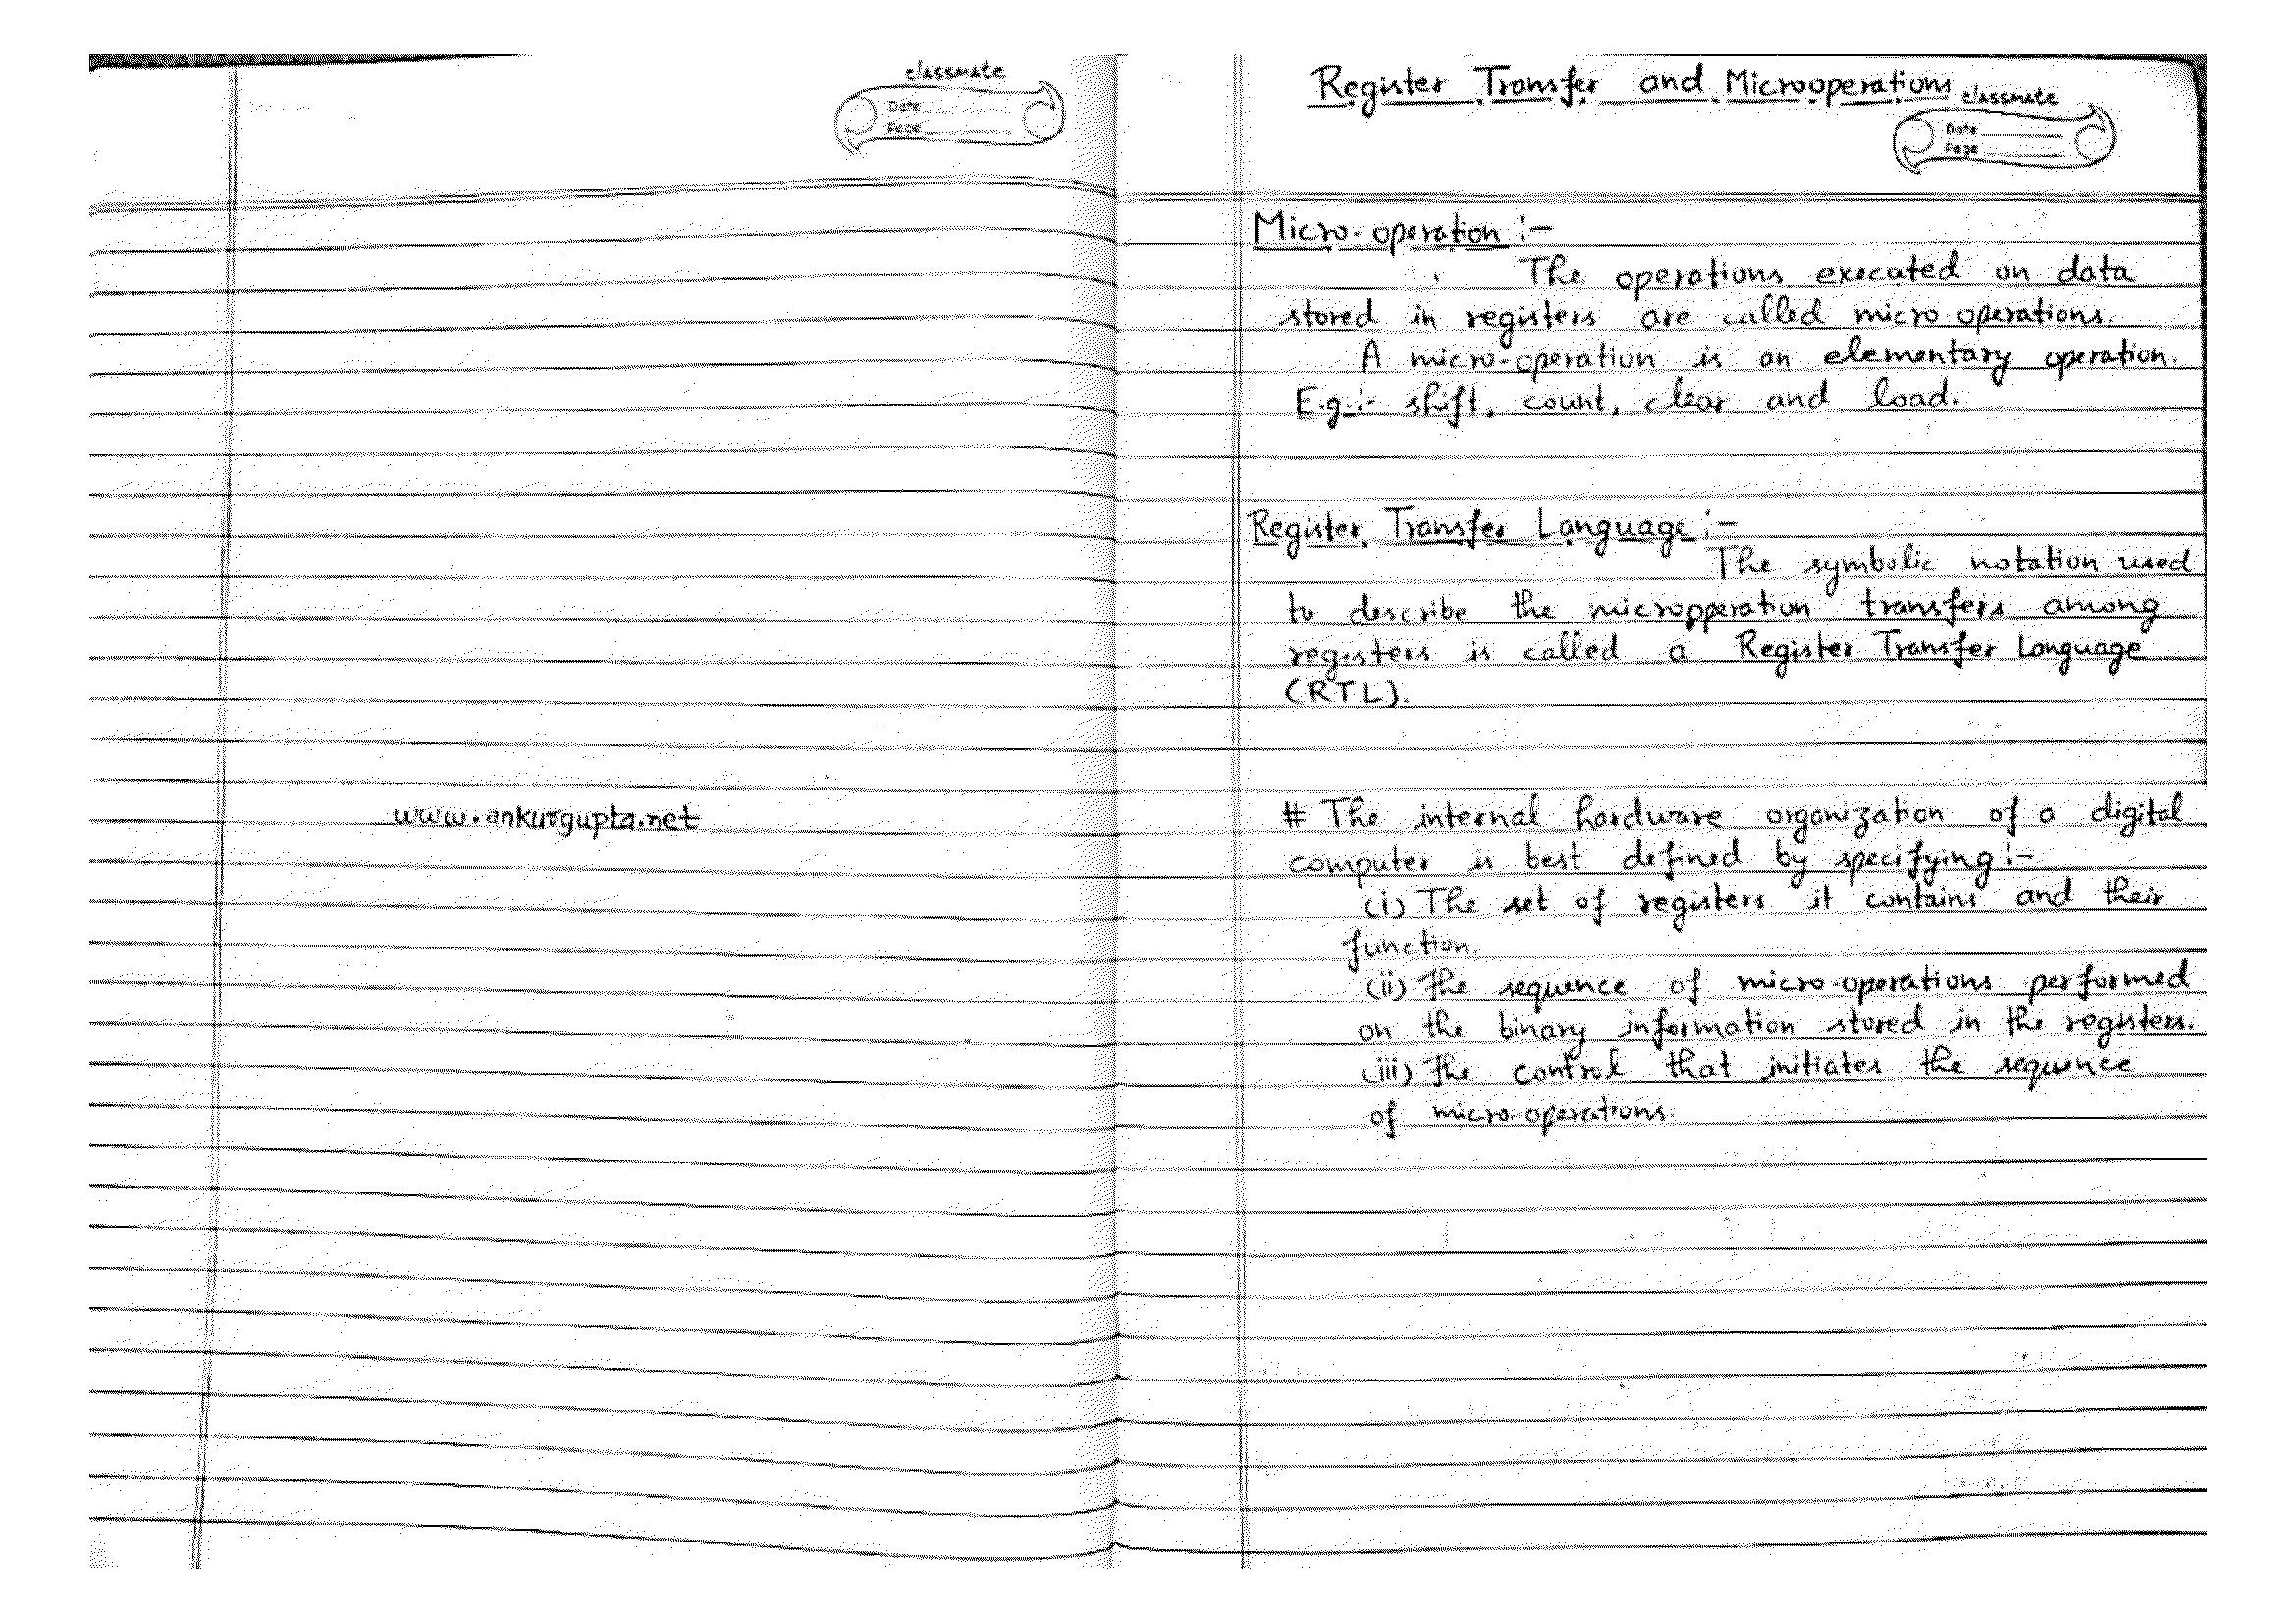 classmate
Date
Page
www.ankurgupta.net
Register Transfer and Microoperations
classmate
Date
Page
Micro-operation :-
The operations executed on data
stored in registers are called micro-operations.
A micro-operation is an elementary operation.
E.g.:- shift, count, clear and load.
Register Transfer Language :-
The symbolic notation used
to describe the microoperation transfers among
registers is called a Register Transfer Language
(RTL).
# The internal hardware organization of a digital
computer is best defined by specifying :-
(i) The set of registers it contains and their
function.
(ii) The sequence of micro-operations performed
on the binary information stored in the registers.
(iii) The control that initiates the sequence
of micro-operations.